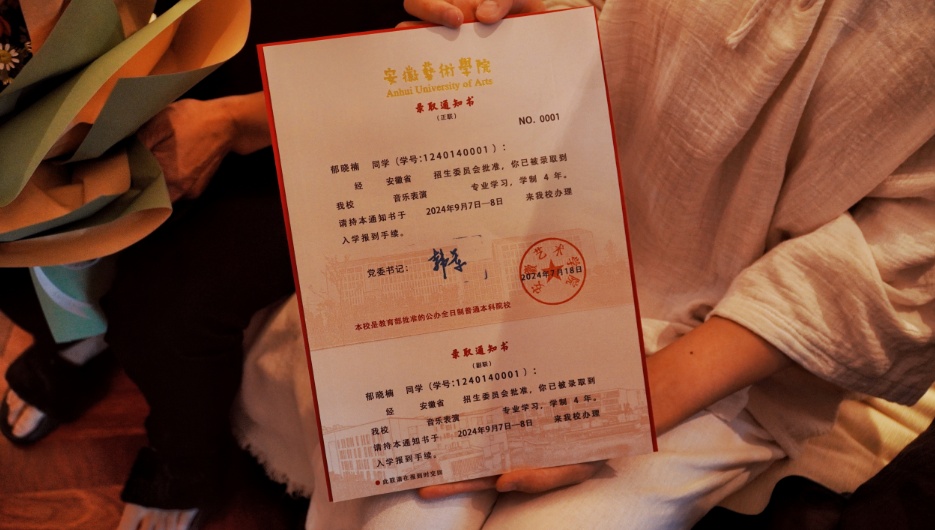 安徽藝術學院
Anhui University of Arts
录取通知书
(正联)
NO. 0001
郁晓楠 同学(学号:1240140001):
经 安徽省 招生委员会批准,你已被录取到
我校 音乐表演 专业学习,学制 4 年。
请持本通知书于 2024年9月7日—8日 来我校办理
入学报到手续。
党委书记:
安徽艺术学院
2024年7月18日
本校是教育部批准的公办全日制普通本科院校
录取通知书
(副联)
郁晓楠 同学(学号:1240140001):
经 安徽省 招生委员会批准,你已被录取到
我校 音乐表演 专业学习,学制 4 年。
请持本通知书于 2024年9月7日—8日 来我校办理
入学报到手续。
●此联请在报到时交回